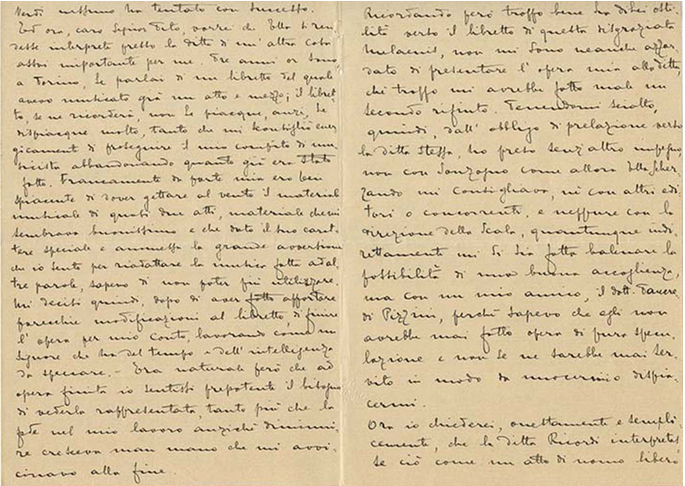 Verdi nessuno ha tentato con successo.
Ed ora, caro Signor Tito, vorrei che Ella si ren-
desse interprete presso la Ditta di un'altra cosa
assai importante per me. Tre anni or sono,
a Torino, Le parlai di un libretto del quale
avevo musicato già un atto e mezzo; il libret-
to, se ne ricorderà, non Le piacque, anzi, Le
dispiacque molto, tanto che mi sconsigliò ener-
gicamente di proseguire il mio compito di mu-
sicista abbandonando quanto già era stato
fatto. Francamente da parte mia ero ben
spiacente di dover gettare al vento il materiale
musicale di quasi due atti, materiale che mi
sembrava buonissimo e che dato il suo carat-
tere speciale e ammessa la grande avversione
che io sento per riadattare la musica fatta ad al-
tre parole, sapevo di non poter più utilizzare.
Mi decisi quindi, dopo di aver fatto apportare
parecchie modificazioni al libretto, di finire
l'opera per mio conto, lavorando come un
Signore che ha del tempo e dell'intelligenza
da sprecare. - Era naturale però che ad
opera finita io sentissi prepotente il bisogno
di vederla rappresentata, tanto più che la
fede nel mio lavoro anziché diminui-
re cresceva man mano che mi avvi-
cinavo alla fine.
Ricordando però troppo bene la di Lei osti-
lità verso il libretto di questa disgraziata
, non mi sono neanche azzar-
dato di presentare l'opera mia alla Ditta,
chè troppo mi avrebbe fatto male un
secondo rifiuto. Tenendomi sciolto,
quindi, dall'obbligo di prelazione verso
la ditta stessa, ho preso senz'altro impegno,
non con Sonzogno come allora Ella scher-
zando mi consigliava, nè con altri edi-
tori o concorrenti, e neppure con la
direzione della Scala, quantunque indi-
rettamente mi si sia fatta balenare la
possibilità di una buona accoglienza,
ma con un mio amico, il dott.
di Pizzini, perchè sapevo che egli non
avrebbe mai fatto opera di pura specu-
lazione e non se ne sarebbe mai ser-
vito in modo da nuocermi o dispia-
cermi.
Ora io chiederei, onestamente e sempli-
cemente, che la ditta Ricordi interpretas-
se ciò come un atto di uomo libero